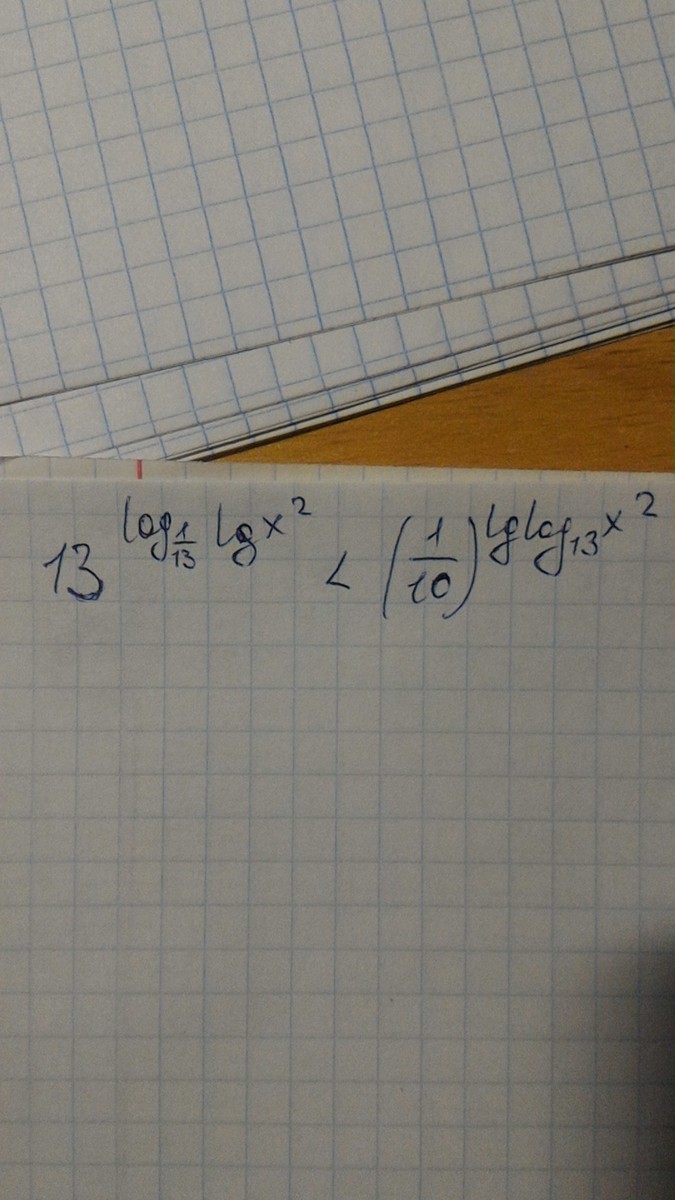 13^{log_{\frac{1}{13}} lg x^2} < (\frac{1}{10})^{lg log_{13} x^2}